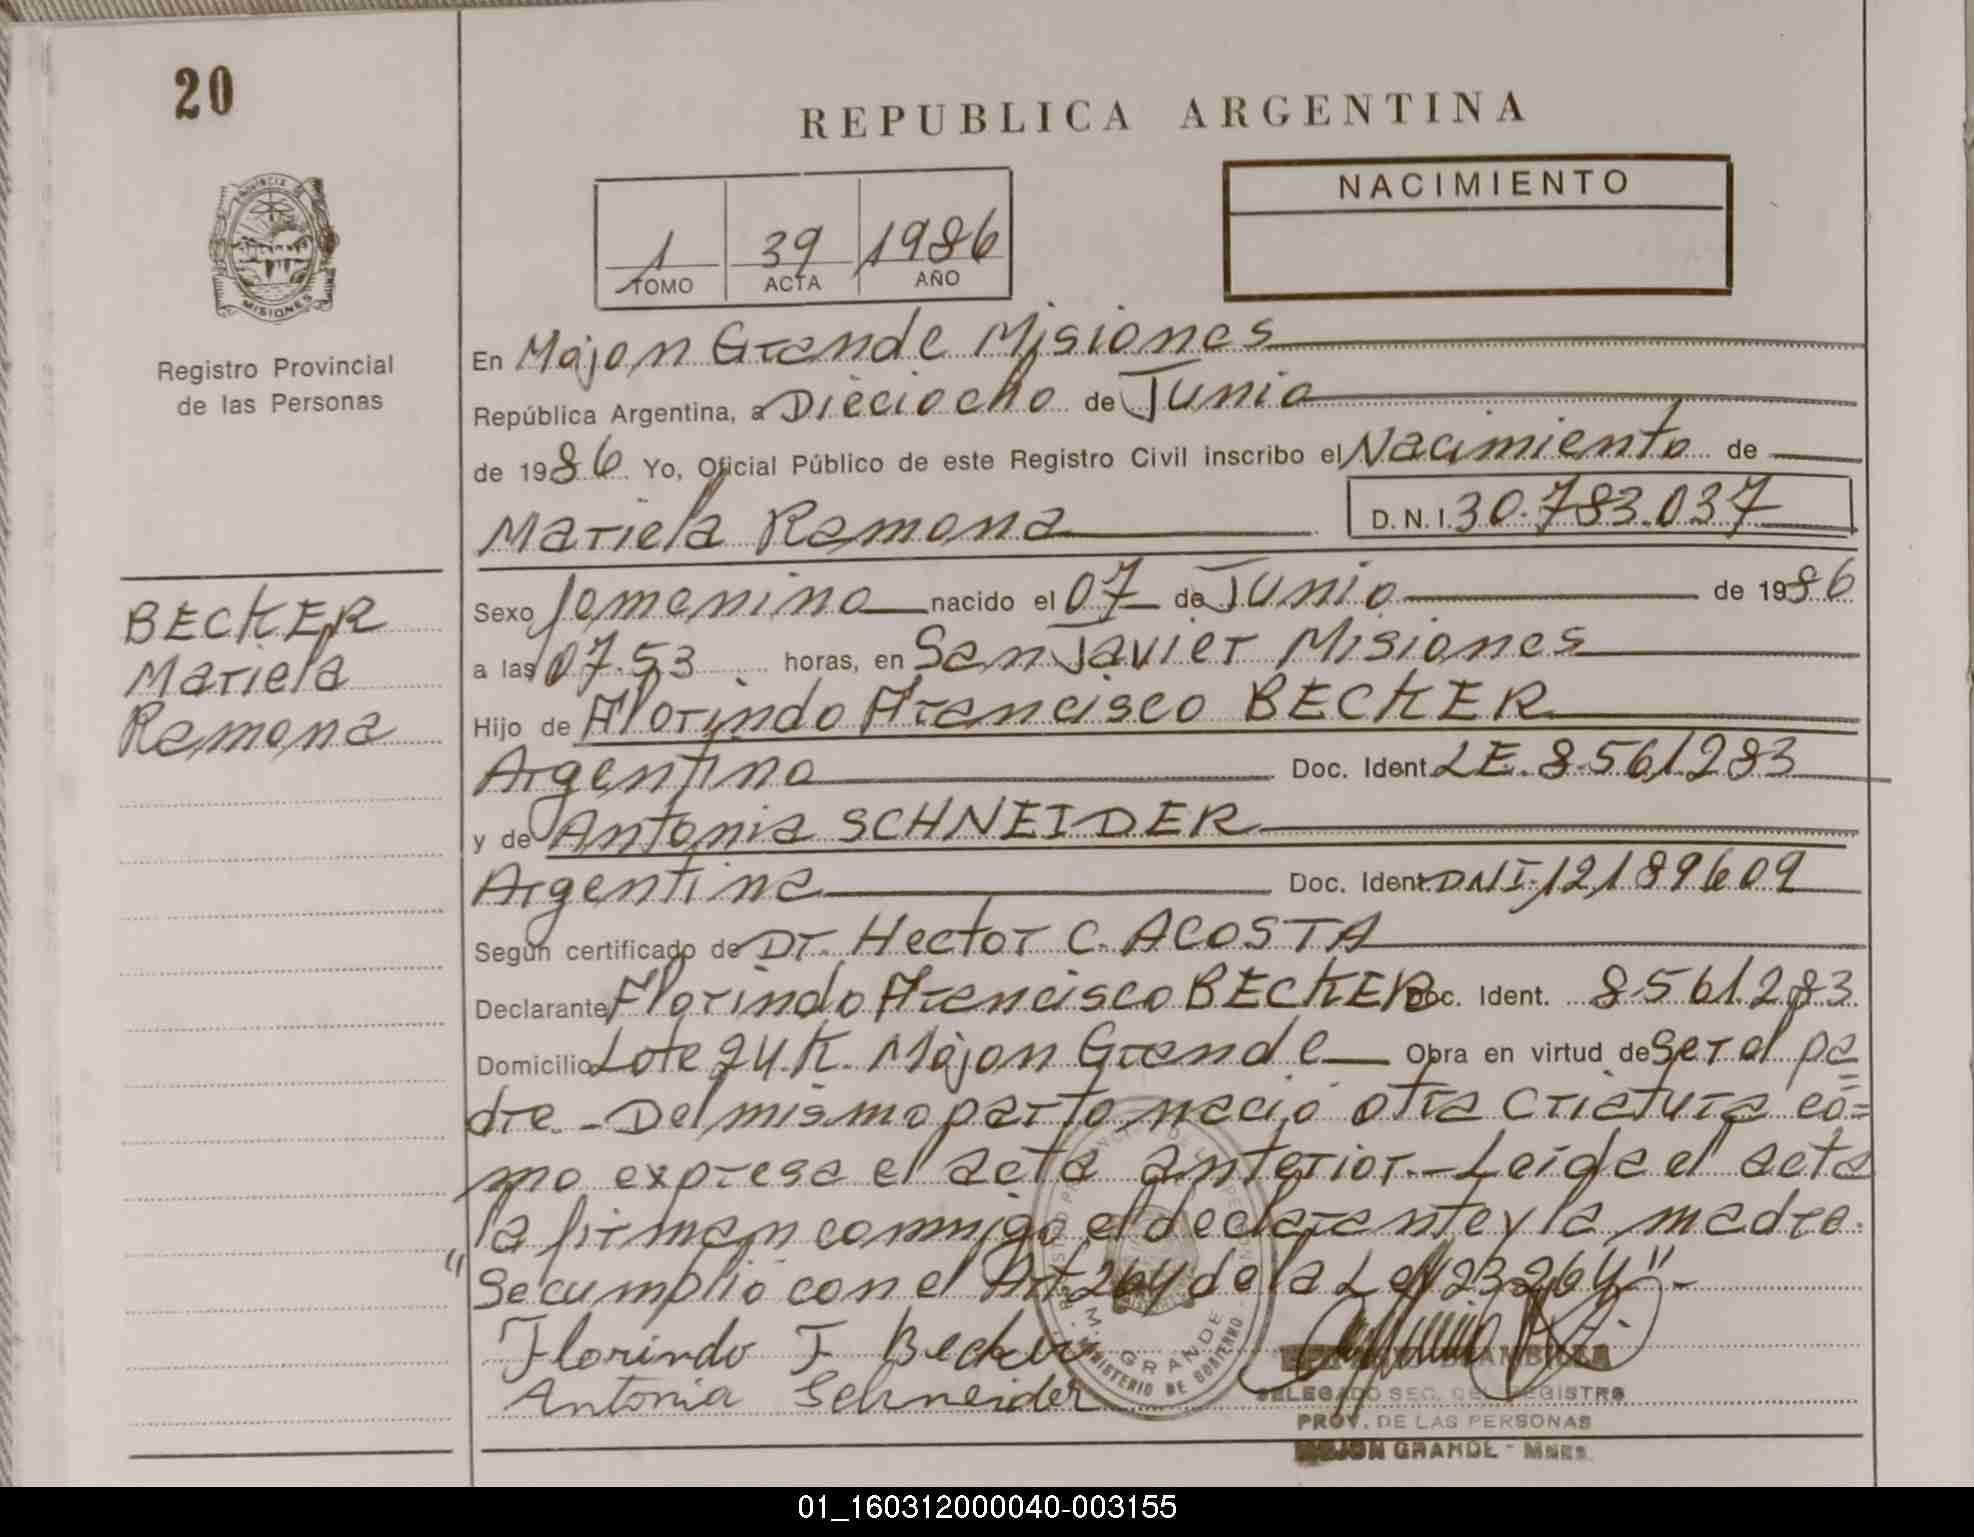 20
REPUBLICA ARGENTINA
PROVINCIA D
MISIONES
Registro Provincial
de las Personas
1 39 1986
TOMO ACTA AÑO
NACIMIENTO
En Mojon Grande Misiones
República Argentina, a Dieciocho de Junio
de 1986. Yo, Oficial Público de este Registro Civil inscribo el Nacimiento de
Mariela Ramona D.N.I. 30.783.037
BECKER
Mariela
Ramona
Sexo femenino nacido el 07 de Junio de 1986
a las 07.53 horas, en San Javier Misiones
Hijo de Florindo Francisco BECKER
Argentino Doc. Ident. LE.8.561283
y de Antonia SCHNEIDER
Argentina Doc. Ident. DNI.12189609
Según certificado de Dr. Hector C. ACOSTA
Declarante Florindo Francisco BECKER Doc. Ident. 8.561.283
Domicilio Lote 24.K. Mojon Grande Obra en virtud de ser el pa=
dre.-Del mismo parto nacio otra criatura co=
mo expresa el acta anterior.-Leida el acta
la firman conmigo el declarante y la madre.
"Se cumplio con el Art 264 de la Ley 23264"-
Florindo F Becker
Antonia Schneider
M. GRANDE
MINISTERIO DE GOBIERNO
DELEGADO SEC. DEL REGISTRO
PROV. DE LAS PERSONAS
MOJON GRANDE - MNES.
01_160312000040-003155